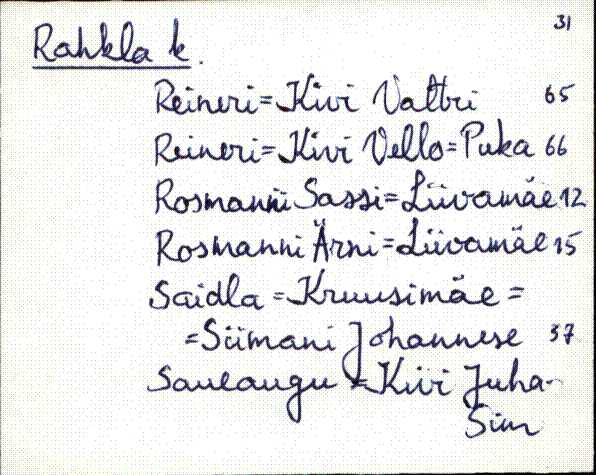 31
Rahkla k.
Reineri=Kivi Valtri 65
Reineri=Kivi Vello=Puka 66
Rosmanni Sassi=Liivamäe 12
Rosmanni Ärni=Liivamäe 15
Saidla=Kruusimäe=
=Siimani Johannese 37
Saueaugu=Kivi Juha-
Sim